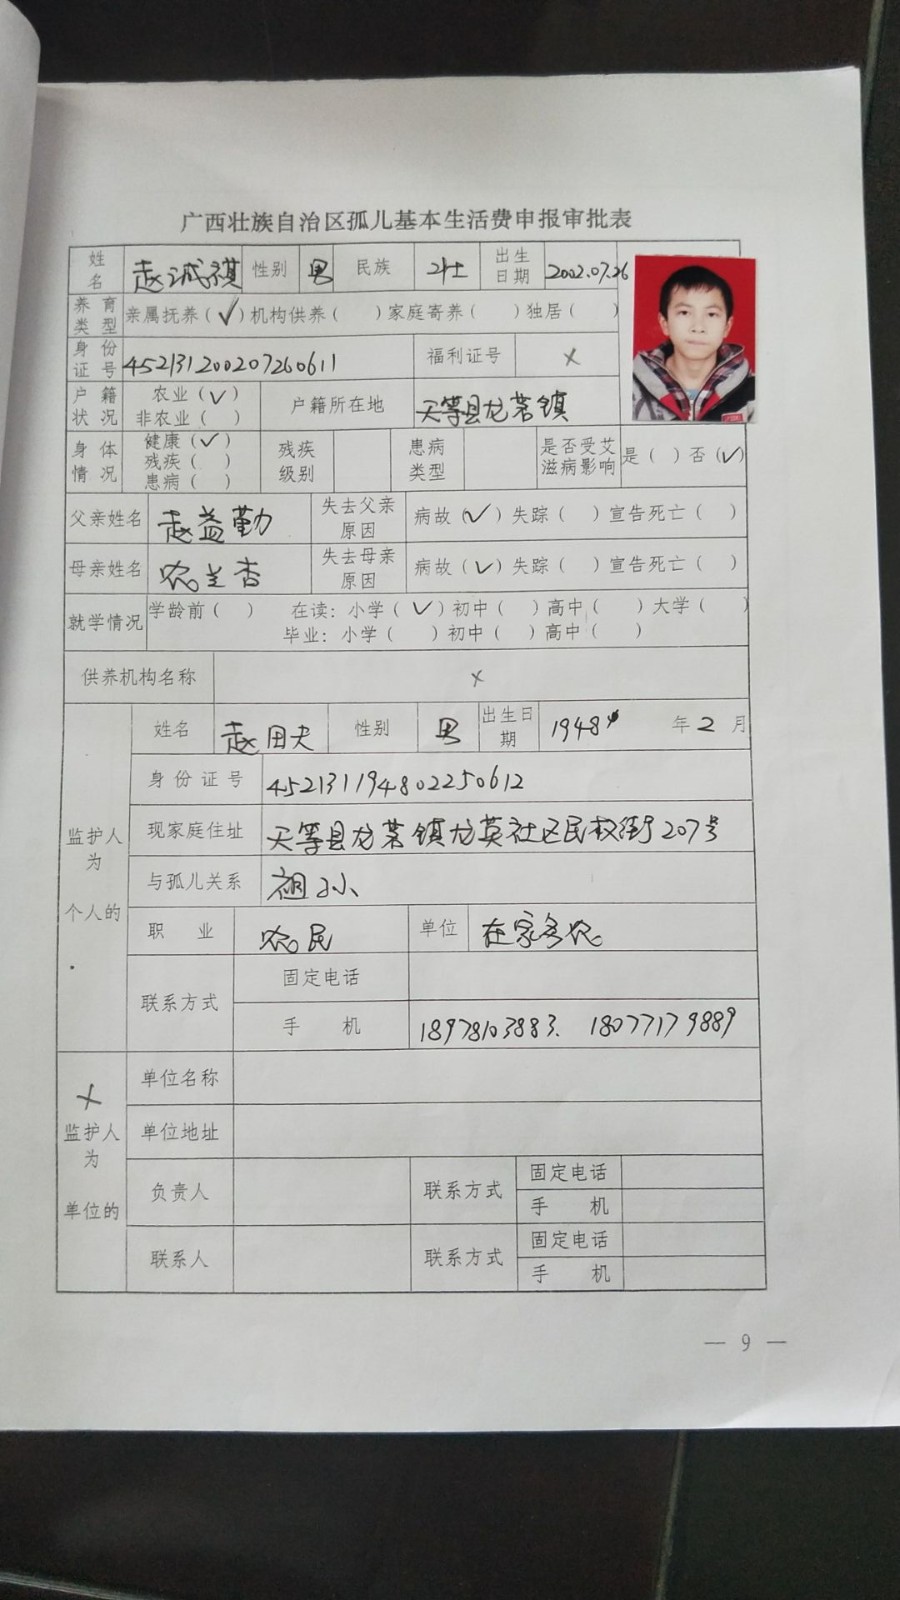 广西壮族自治区孤儿基本生活费申报审批表
姓名 赵诚祺 性别 男 民族 壮 出生日期 2002.07.26
养育类型 亲属抚养(✓)机构供养( )家庭寄养( )独居( )
身份证号 452131200207260611 福利证号 ×
户籍状况 农业(✓) 非农业( ) 户籍所在地 天等县龙茗镇
身体情况 健康(✓) 残疾( ) 患病( ) 残疾级别 患病类型 是否受艾滋病影响 是( )否(✓)
父亲姓名 赵益勤 失去父亲原因 病故(✓)失踪( )宣告死亡( )
母亲姓名 农兰杏 失去母亲原因 病故(✓)失踪( )宣告死亡( )
就学情况 学龄前( ) 在读:小学(✓)初中( )高中( )大学( )
毕业:小学( )初中( )高中( )
供养机构名称 ×
监护人为个人的
姓名 赵田夫 性别 男 出生日期 1948 年 2 月
身份证号 452131194802250612
现家庭住址 天等县龙茗镇龙英社区民权街207号
与孤儿关系 祖孙
职业 农民 单位 在家务农
联系方式 固定电话
手机 18978103883、18077179889
× 监护人为单位的
单位名称
单位地址
负责人 联系方式 固定电话
手机
联系人 联系方式 固定电话
手机
— 9 —